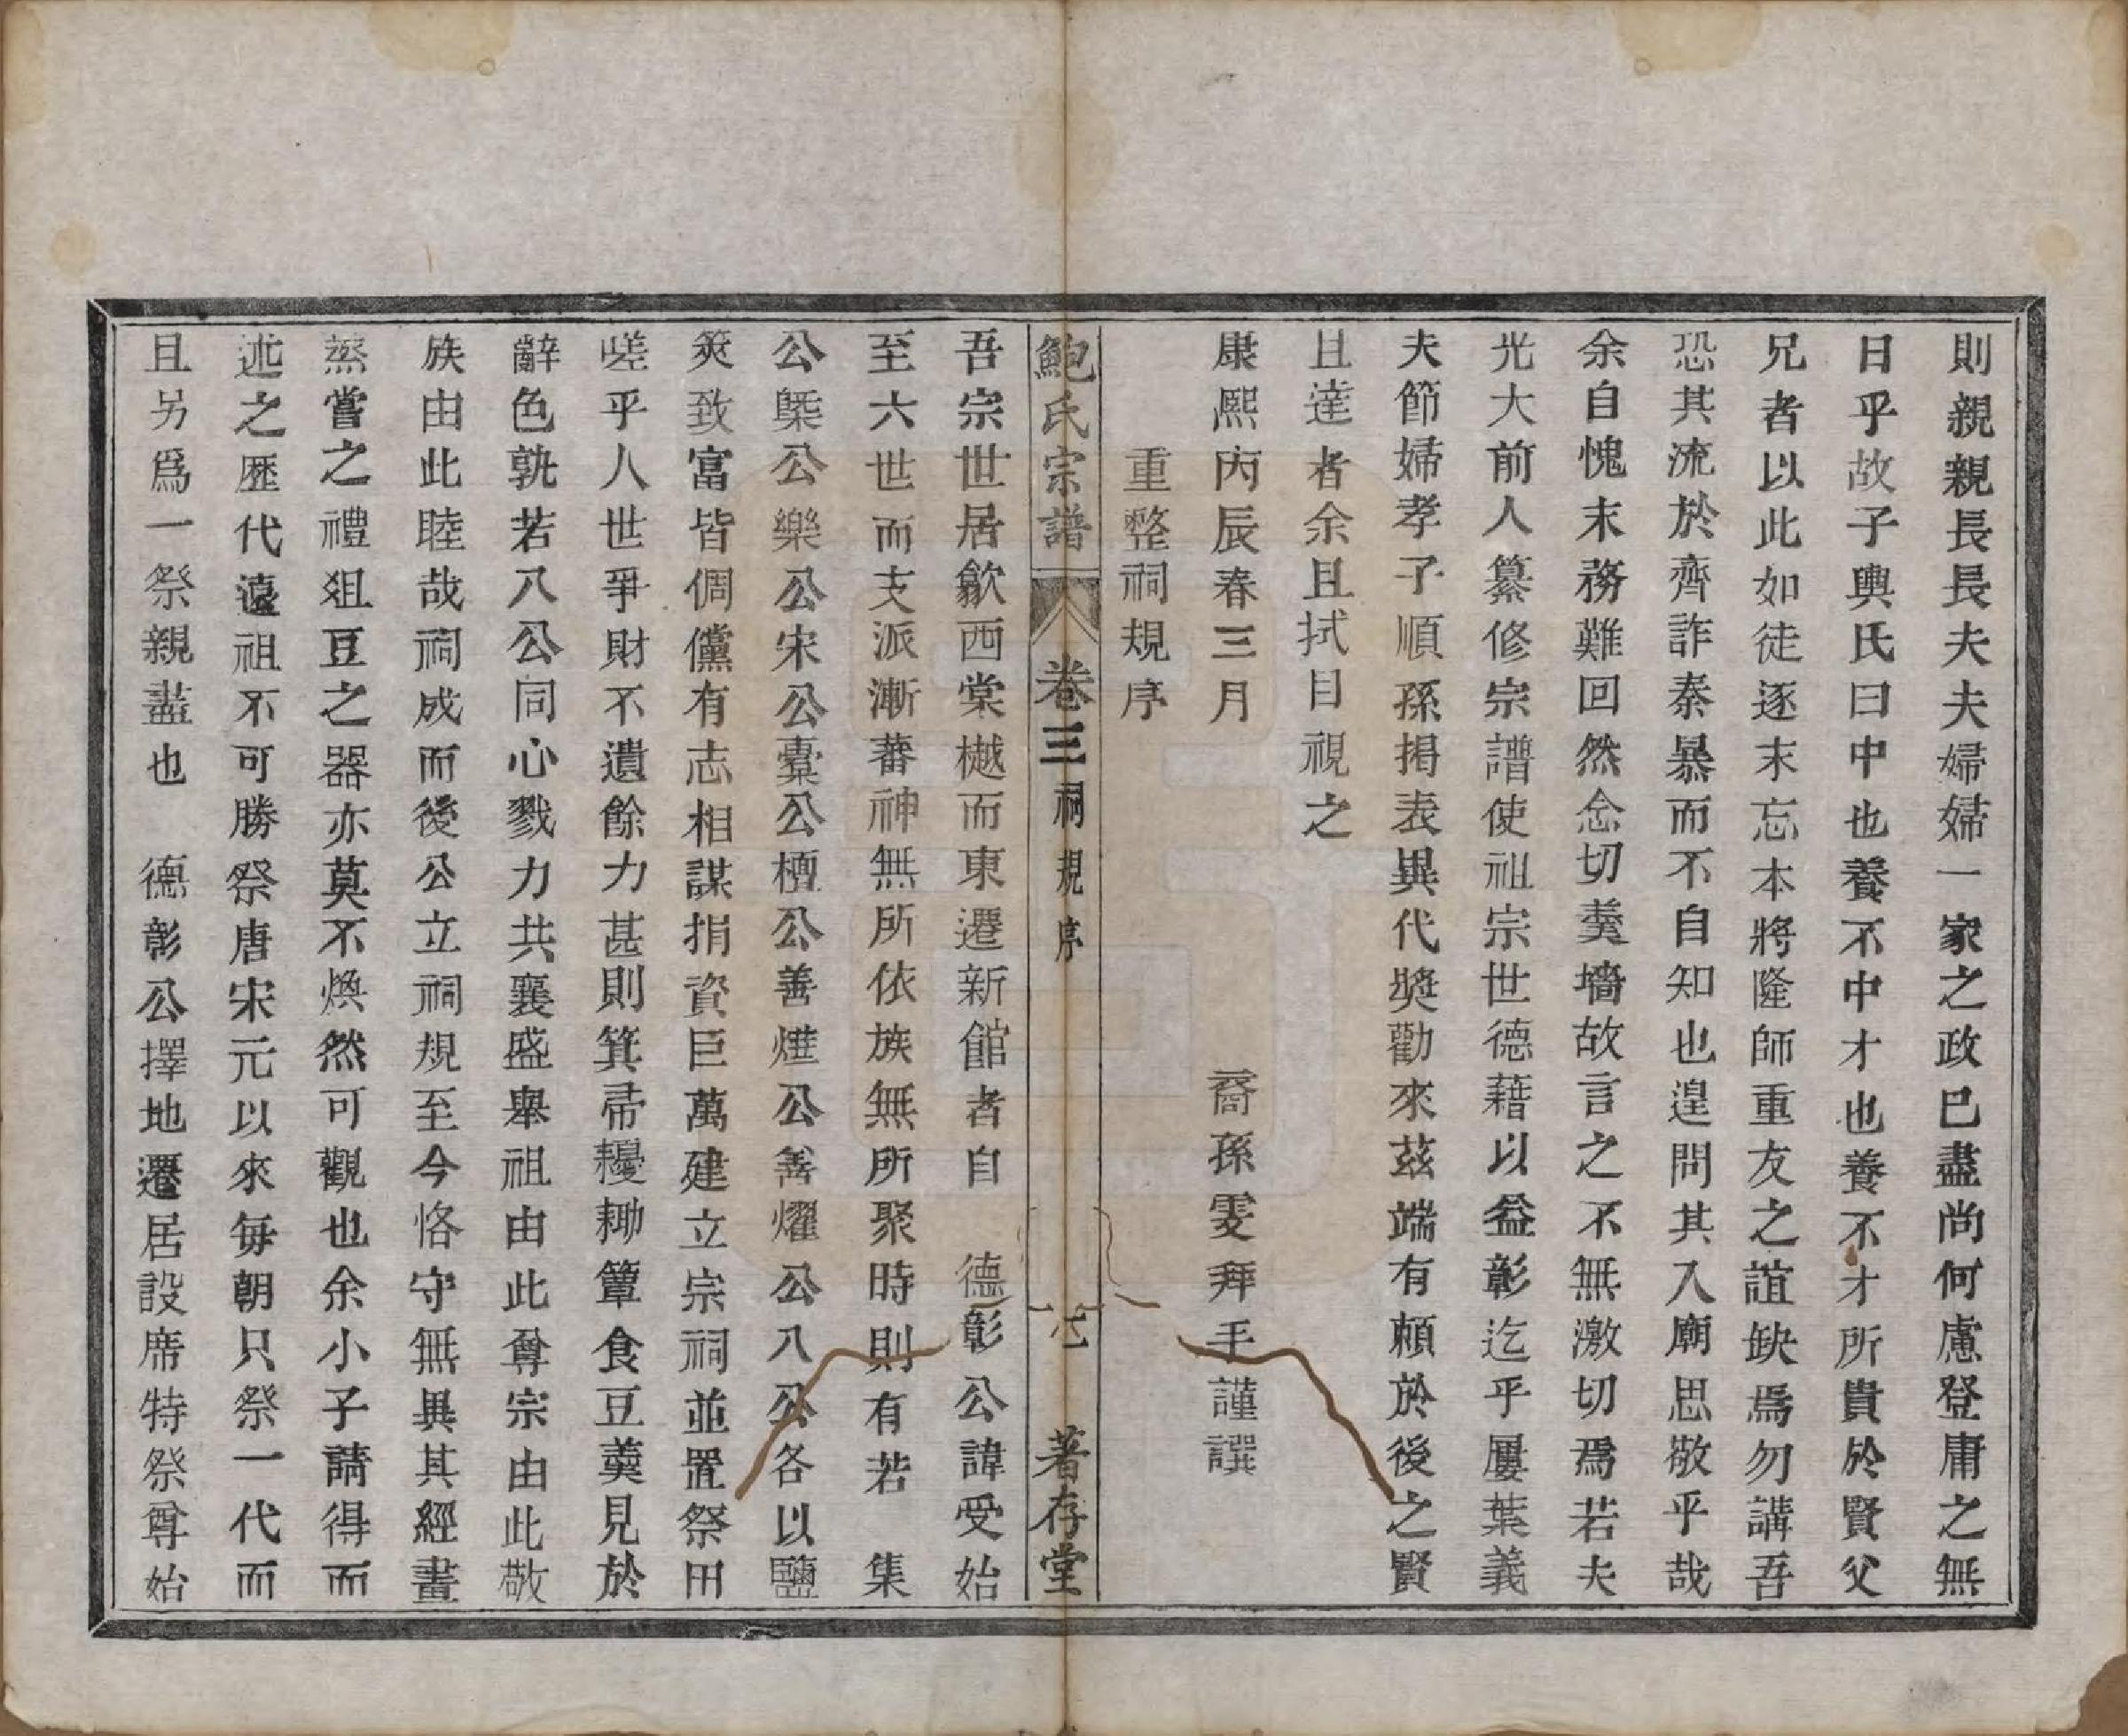 則親親長長夫夫婦婦一家之政已盡尚何慮登庸之無
日乎故子輿氏曰中也養不中才也養不才所貴於賢父
兄者以此如徒逐末忘本將隆師重友之誼缺焉勿講吾
恐其流於齊詐秦暴而不自知也遑問其入廟思敬乎哉
余自愧末務難回然念切羹墻故言之不無激切焉若夫
光大前人纂修宗譜使祖宗世德藉以益彰迄乎屢葉義
夫節婦孝子順孫揭表異代獎勸來茲端有頼於後之賢
且達者余且拭目視之
康熙丙辰春三月 裔孫雯拜手謹譔
重整祠規序
鮑氏宗譜 卷三 祠規序 七 著存堂
吾宗世居歙西棠樾而東遷新館者自 德彰公諱受始
至六世而支派漸蕃神無所依族無所聚時則有若 集
公槩公樂公宋公橐公檀公善烓公善燿公八公各以鹽
筴致富皆倜儻有志相謀捐資巨萬建立宗祠並置祭田
嗟乎人世爭財不遺餘力甚則箕帚耰耡簞食豆羹見於
辭色孰若八公同心戮力共襄盛舉祖由此尊宗由此敬
族由此睦哉祠成而後公立祠規至今恪守無異其經畫
蒸嘗之禮俎豆之器亦莫不煥然可觀也余小子請得而
述之歷代遠祖不可勝祭唐宋元以來每朝只祭一代而
且另爲一祭親盡也 德彰公擇地遷居設席特祭尊始